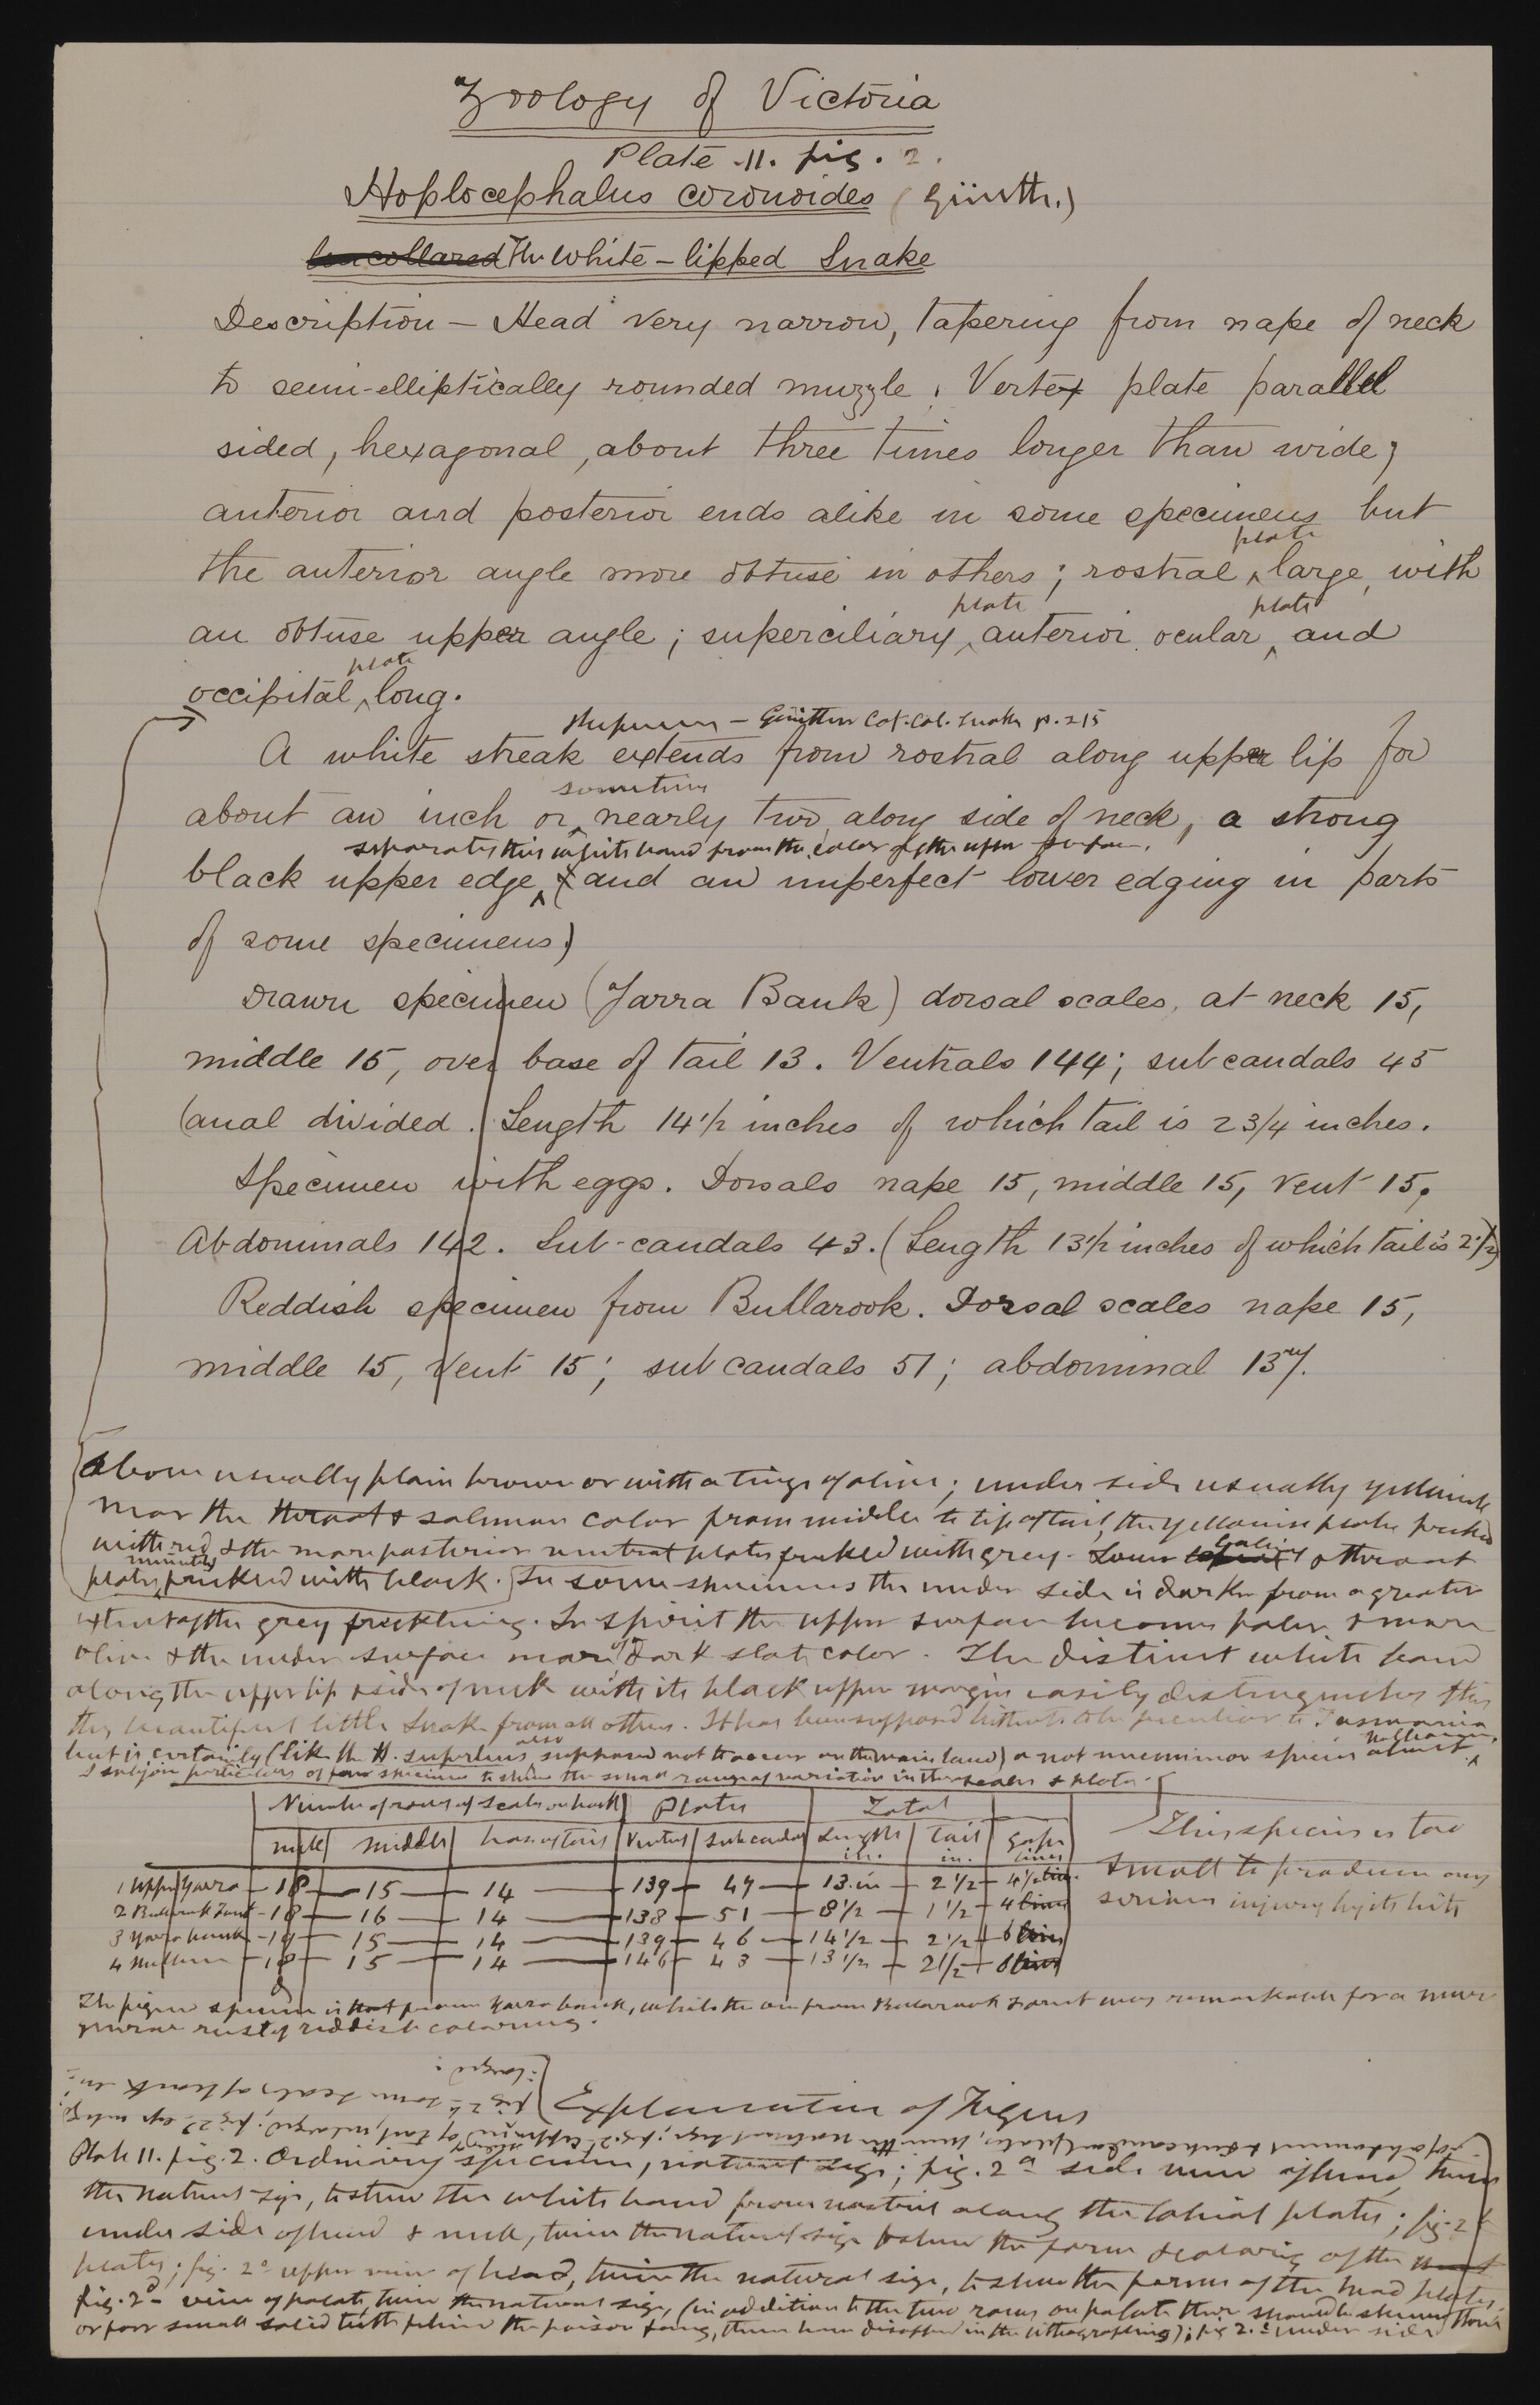 Zoology of Victoria
Plate 11. fig. 2.
Hoplocephalus coronoides (Günth.)
collared The White-lipped Snake
Description — Head very narrow, tapering from nape of neck
to semi-elliptically rounded muzzle. Vertex plate parallel
sided, hexagonal, about three times longer than wide;
anterior and posterior ends alike in some specimens but
plate
the anterior angle more obtuse in others; rostral large, with
plate plate
an obtuse upper angle; superciliary, anterior ocular, and
plate
occipital long.
Günther Cat. Col. Snakes p. 215
A white streak extends from rostral along upper lip for
sometimes
about an inch or nearly two along side of neck, a strong
separates this white band from the color of the upper surface.
black upper edge (and an imperfect lower edging in parts
of some specimens)
Drawn specimen (Yarra Bank) dorsal scales, at neck 15,
middle 15, over base of tail 13. Ventrals 144; subcaudals 45
(anal divided. Length 14 1/2 inches of which tail is 2 3/4 inches.
Specimen with eggs. Dorsals nape 15, middle 15, vent 15.
Abdominals 142. Sub-caudals 43. (Length 13 1/2 inches of which tail is 2 1/2)
Reddish specimen from Bullarook. Dorsal scales nape 15,
middle 15, vent 15; subcaudals 51; abdominal 137.
Above usually plain brown or with a tinge of olive; under side usually yellowish
near the throat & salmon color from middle to tip of tail, the yellowish plates freckled
with red & the more posterior ventral plates freckled with grey. Lower labial & throat
minutely
plates freckled with black. In some specimens the under side is darker from a greater
extent of the grey freckling. In spirit the upper surface becomes paler & more
olive & the under surface more of a dark slate color. The distinct white band
along the upper lip & side of neck with its black upper margin easily distinguishes this
this beautiful little Snake from all others. It has been supposed hitherto to be peculiar to Tasmania
also
but is certainly (like the H. superbus supposed not to occur on the main land) a not uncommon species about Melbourne.
I subjoin particulars of four specimens to show the small range of variation in the scales & plates.
Number of rows of scales on back Plates Total
neck middle base of tail Ventral Subcaudal Length in. Tail in. Gape lines
1 Upper Yarra 18 15 14 139 49 13 in 2 1/2 4 1/2 lin.
2 Bullarook Forest 18 16 14 138 51 8 1/2 1 1/2 4 lines
3 Yarra bank 19 15 14 139 46 14 1/2 2 1/2 6 lines
4 Melbourne 18 15 14 146 43 13 1/2 2 1/2 6 lines
This species is too
small to produce any
serious injury by its bite
The figured specimen is from Yarra bank, while the one from Bullarook Forest was remarkable for a more
rusty reddish colouring.
Explanation of Figures
Plate 11. fig. 2. Ordinary specimen, natural size; fig. 2a side view of head, twice
the natural size, to show the white band from nostril along the labial plates; fig. 2b
under side of head & neck, twice the natural size to show the form & coloring of the
plates; fig. 2c upper view of head, twice the natural size, to show the form of the head plates
fig. 2d view of palate, twice the natural size, (in addition to the two rows on palate there should be shown three
or four small solid teeth behind the poison fang, these have disappeared in the lithographing); fig. 2e under side
of abdominal & subcaudal plates, twice the natural size;
of tail, enlarged; fig. 2g eye enlarged
some scales of back